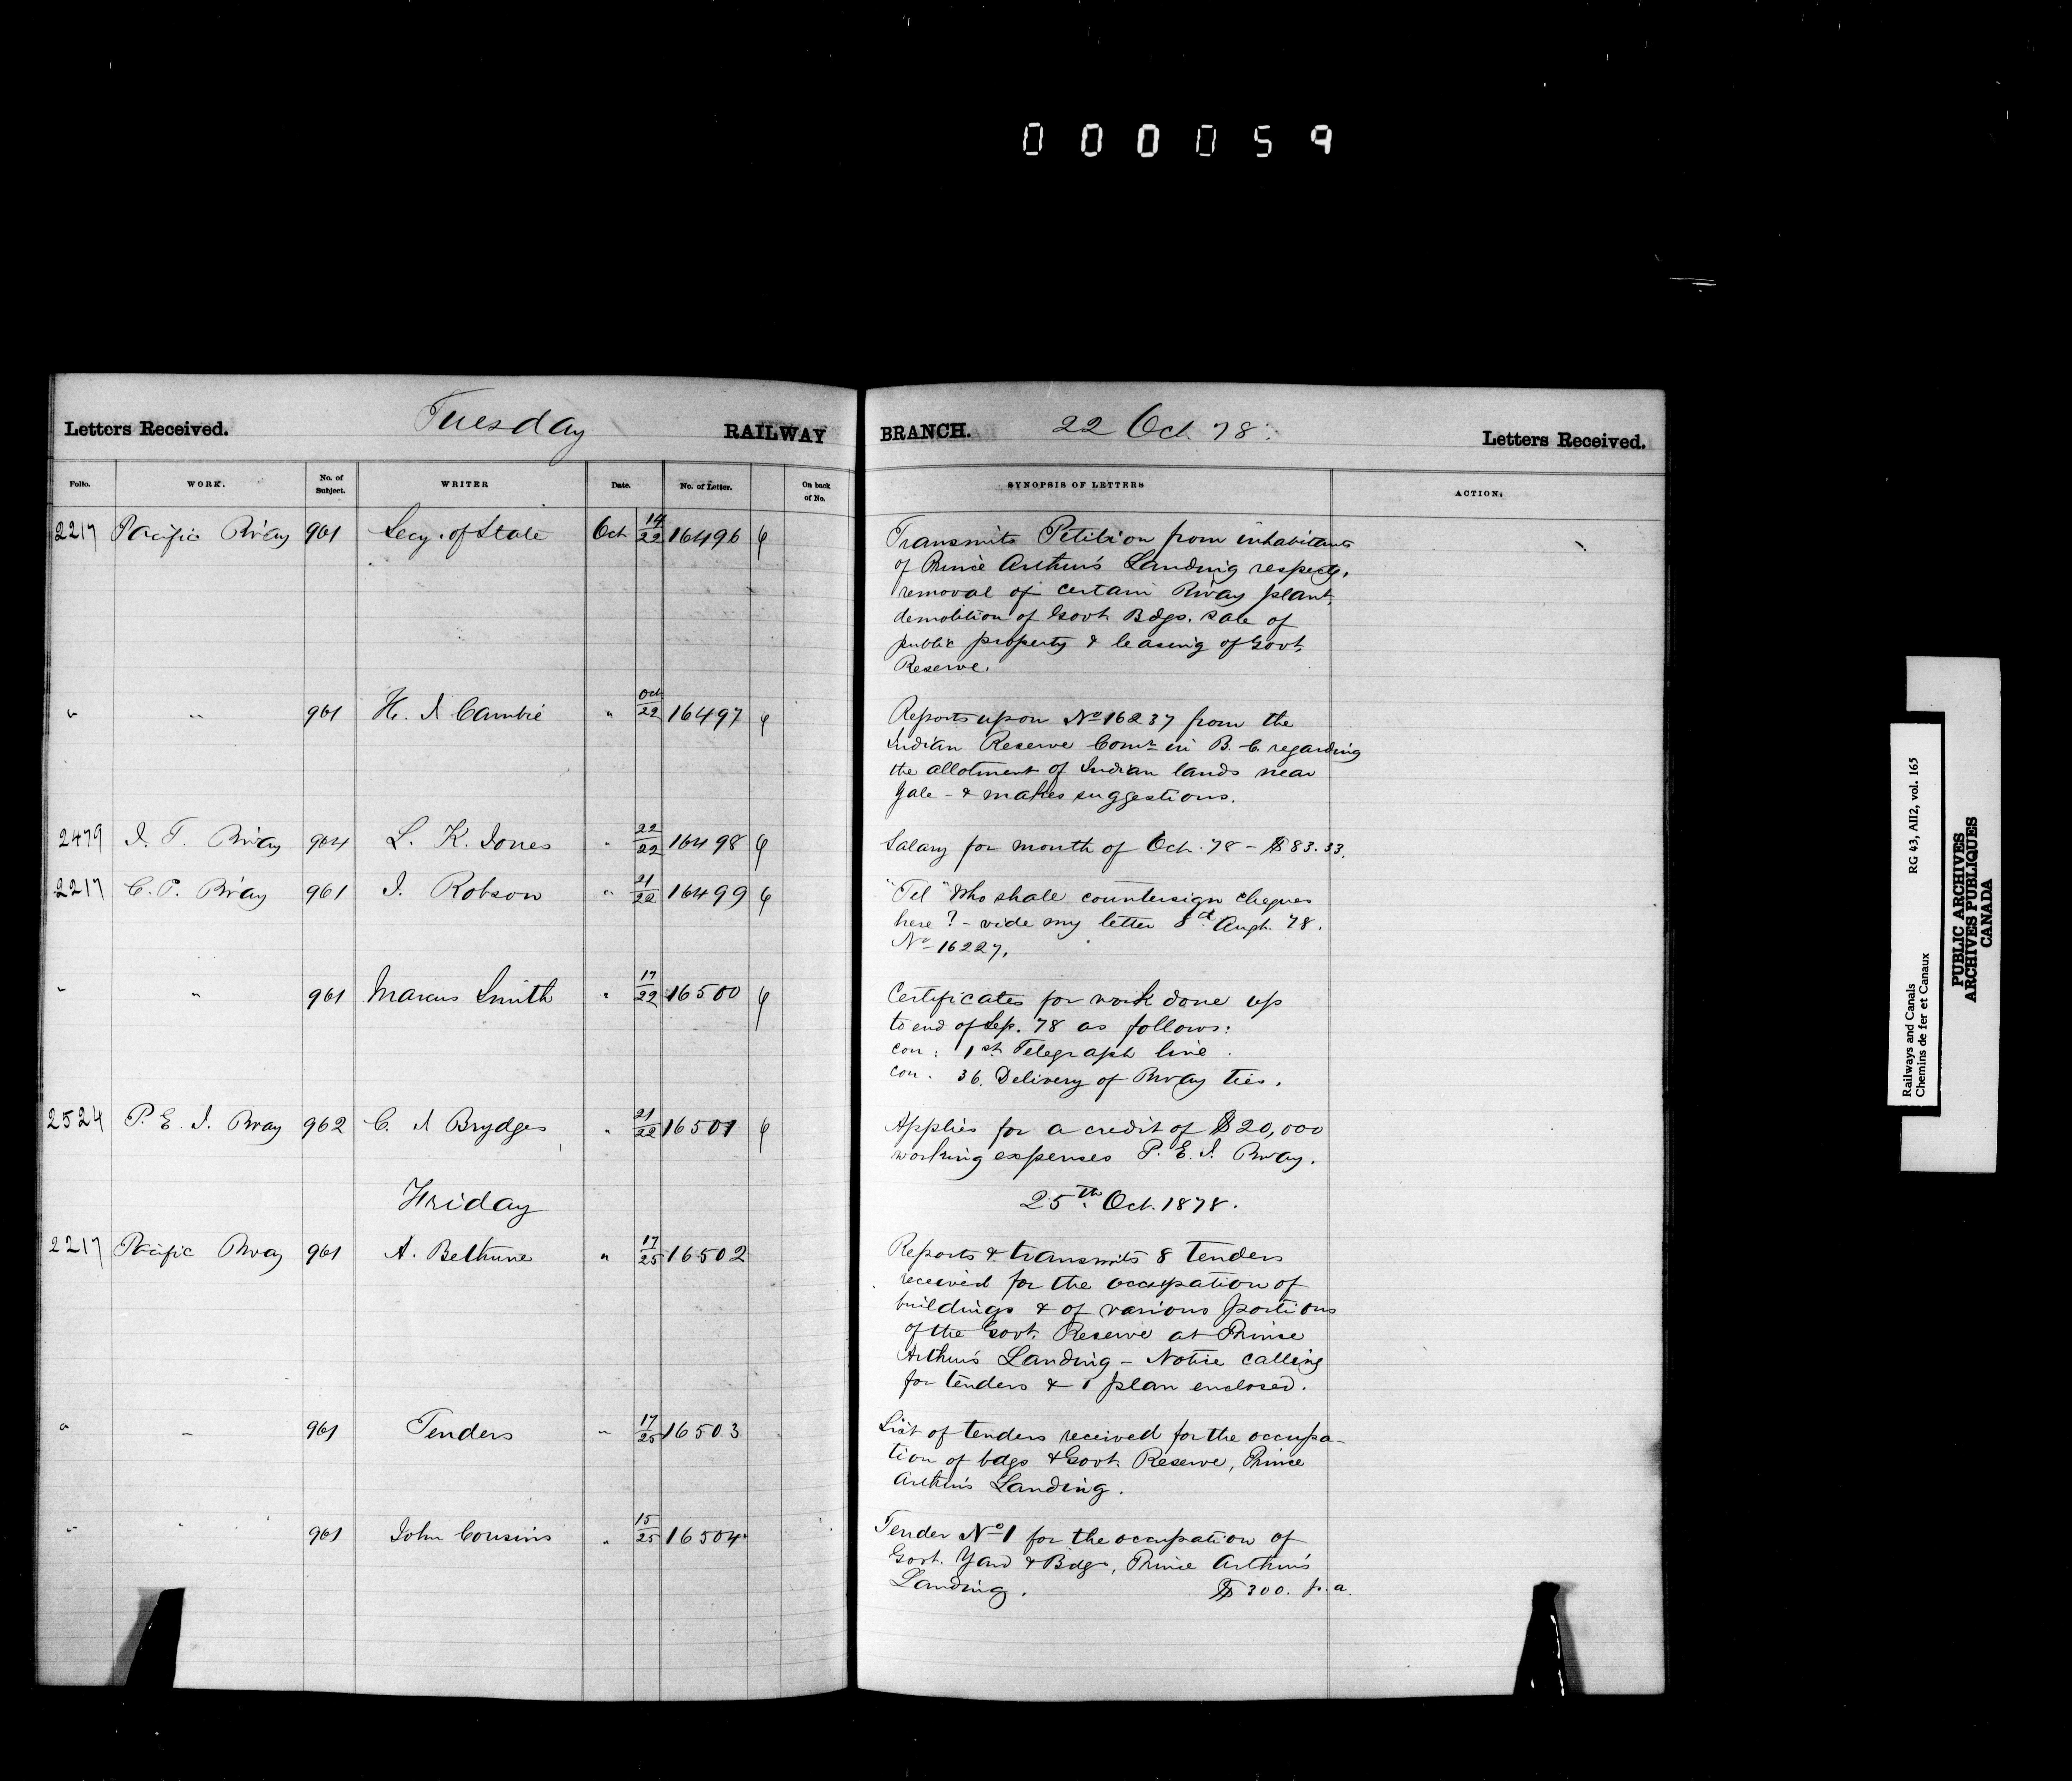 000059
Letters Received. Tuesday RAILWAY BRANCH. 22 Oct. 78. Letters Received.
Folio. WORK. No. of Subject. WRITER Date. No. of Letter. On back of No. SYNOPSIS OF LETTERS ACTION.
2217 Pacific Rway 961 Secy. of State Oct 14/22 16496 Transmits Petition from inhabitants
of Prince Arthur's Landing respectg.
removal of certain Rway plant,
demolition of Govt Bdgs. sale of
public property & leasing of Govt
Reserve.
" " 961 H. J Cambie " Oct/22 16497 Reports upon No 16237 from the
Indian Reserve Comr in B. C. regarding
the allotment of Indian lands near
Yale - & makes suggestions.
2479 I. T. Rway 964 L. K. Jones " 22/22 16498 Salary for month of Oct. 78 - $83.33.
2217 C. P. Rway 961 J. Robson " 21/22 16499 "Tel" Who shall countersign cheques
here? - vide my letter 8th Augt. 78.
No 16227.
" " 961 Marcus Smith " 17/22 16500 Certificates for work done up
to end of Sep. 78 as follows:
con: 1st Telegraph line.
con. 36. Delivery of Rway ties.
2524 P. E. I. Rway 962 C. J Brydges " 21/22 16501 Applies for a credit of $20,000
working expenses P. E. I. Rway.
Friday 25th Oct. 1878.
2217 Pacific Rway 961 A. Bethune " 17/25 16502 Reports & transmits 8 tenders
received for the occupation of
buildings & of various portions
of the Govt. Reserve at Prince
Arthur's Landing - Notice calling
for tenders & 1 plan enclosed.
" " 961 Tenders " 17/25 16503 List of tenders received for the occupa-
tion of bdgs & Govt. Reserve, Prince
Arthur's Landing.
" " 961 John Cousins " 15/25 16504 Tender No 1 for the occupation of
Govt. Yard & Bdgs, Prince Arthur's
Landing. $300. p. a.
Railways and Canals RG 43, AII2, vol. 165
Chemins de fer et Canaux
PUBLIC ARCHIVES
ARCHIVES PUBLIQUES
CANADA